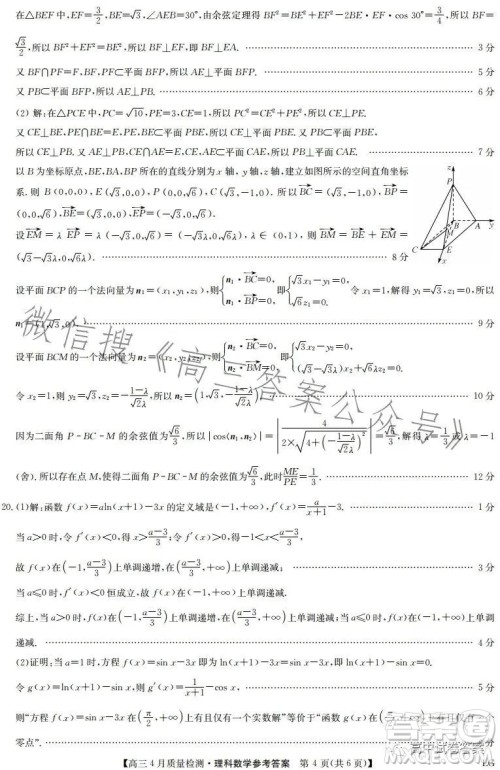 在△BEF 中,EF=3/2,BE=√3,∠AEB=30°,由余弦定理得 BF²=BE²+EF²-2BE·EF·cos 30°=3/4,所以 BF=
√3/2,所以 BF²+EF²=BE²,所以 BF⊥EF,即 BF⊥EA. …… 3 分
又 BF∩PF=F,BF,PF⊂平面 BFP,所以 AE⊥平面 BFP. …… 5 分
又 PB⊂平面 BFP,所以 AE⊥PB. …… 6 分
(2) 解:在△PCE 中,PC=√10,PE=3,CE=1,所以 PC²=CE²+PE²,所以 CE⊥PE.
又 CE⊥BE,PE∩BE=E,PE,BE⊂平面 PBE,所以 CE⊥平面 PBE.又 PB⊂平面 PBE,
所以 CE⊥PB.又 AE⊥PB,CE∩AE=E,CE,AE⊂平面 CAE,所以 PB⊥平面 CAE. …… 7 分
以 B 为坐标原点,BE,BA,BP 所在的直线分别为 x 轴,y 轴,z 轴,建立如图所示的空间直角坐标
系.则 B(0,0,0),E(√3,0,0),P(0,0,√6),C(√3,-1,0).所以BC=(√3,-1,0),BP=
(0,0,√6),BE=(√3,0,0),EP=(-√3,0,√6).
设EM=λ EP=λ(-√3,0,√6)=(-√3λ,0,√6λ),λ∈(0,1),则 BM=BE+EM=
(√3-√3λ,0,√6λ). …… 8 分
z
P
B
A
y
M
C
E
x
设平面 BCP 的一个法向量为 n₁=(x₁,y₁,z₁),则{n₁·BC=0, n₁·BP=0, 即{√3x₁-y₁=0, √6z₁=0. 令 x₁=1,解得 y₁=√3,z₁=0,所以
n₁=(1,√3,0). …… 9 分
设平面 BCM 的一个法向量为 n₂=(x₂,y₂,z₂),则{n₂·BC=0, n₂·BM=0, 即{√3x₂-y₂=0, (√3-√3λ)x₂+√6λz₂=0.
令 x₂=1,则 y₂=√3,z₂=-(1-λ)/(√2λ),所以 n₂=(1,√3,-(1-λ)/(√2λ)). …… 10 分
因为二面角 P-BC-M 的余弦值为√6/3,所以|cos⟨n₁,n₂⟩|=|4/(2×√(4+(-(1-λ)/(√2λ))²))|=√6/3,解得 λ=1/3 或 λ=-1
(舍).所以存在点 M,使得二面角 P-BC-M 的余弦值为√6/3,此时ME/PE=1/3. …… 12 分
20.(1)解:函数 f(x)=aln(x+1)-3x 的定义域是(-1,+∞),f′(x)=a/(x+1)-3. …… 1 分
当 a>0 时,令 f′(x)<0,得 x>(a-3)/3;令 f′(x)>0,得-1<x<(a-3)/3,
故 f(x)在(-1,(a-3)/3)上单调递增,在((a-3)/3,+∞)上单调递减; …… 3 分
当 a≤0 时,f′(x)<0 恒成立,故 f(x)在(-1,+∞)上单调递减.
综上,当 a>0 时,f(x)在(-1,(a-3)/3)上单调递增,在((a-3)/3,+∞)上单调递减;当 a≤0 时,f(x)在(-1,+∞)上单调
递减. …… 4 分
(2)证明:当 a=1 时,方程 f(x)=sin x-3x 即为 ln(x+1)-3x=sin x-3x,即 ln(x+1)-sin x=0.
令 g(x)=ln(x+1)-sin x,则 g′(x)=1/(x+1)-cos x, …… 5 分
则“方程 f(x)=sin x-3x 在(π/2,+∞)上有且仅有一个实数解”等价于“函数 g(x)在(π/2,+∞)上有且仅有一个
零点”.
【高三 4 月质量检测·理科数学参考答案 第 4 页(共 6 页)】
微信搜《高三答案公众号》